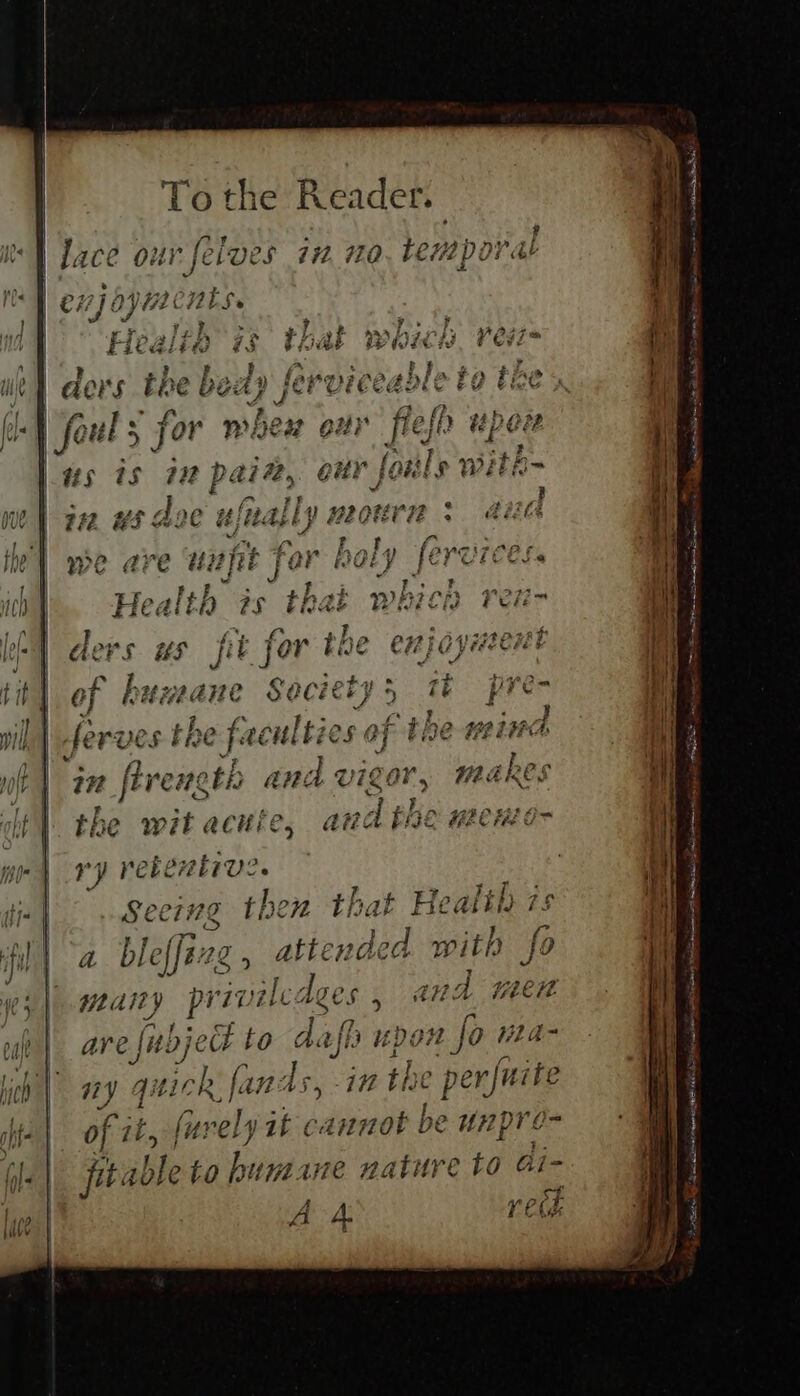 To the Reader.
lace our ſelves in no temporal
enjoyments.
Health is that which ren-
ders the body ſerviceable to the
ſoul; for when our fleſh upon
us is in pain, our ſouls with-
in us doe uſually mourn : and
we are unfit for holy ſervices.
Health is that which ren-
ders us fit for the enjoyment
of humane Society; it pre-
ſerves the faculties of the mind
in ſtrength and vigor, makes
the wit acute, and the memo-
ry retentive.
Seeing then that Health is
a bleſſing, attended with ſo
many priviledges, and men
are ſubject to daſh upon ſo ma-
ny quick ſands, in the perſuite
of it, ſurely it cannot be unpro-
fitable to humane nature to di-
A 4 rect